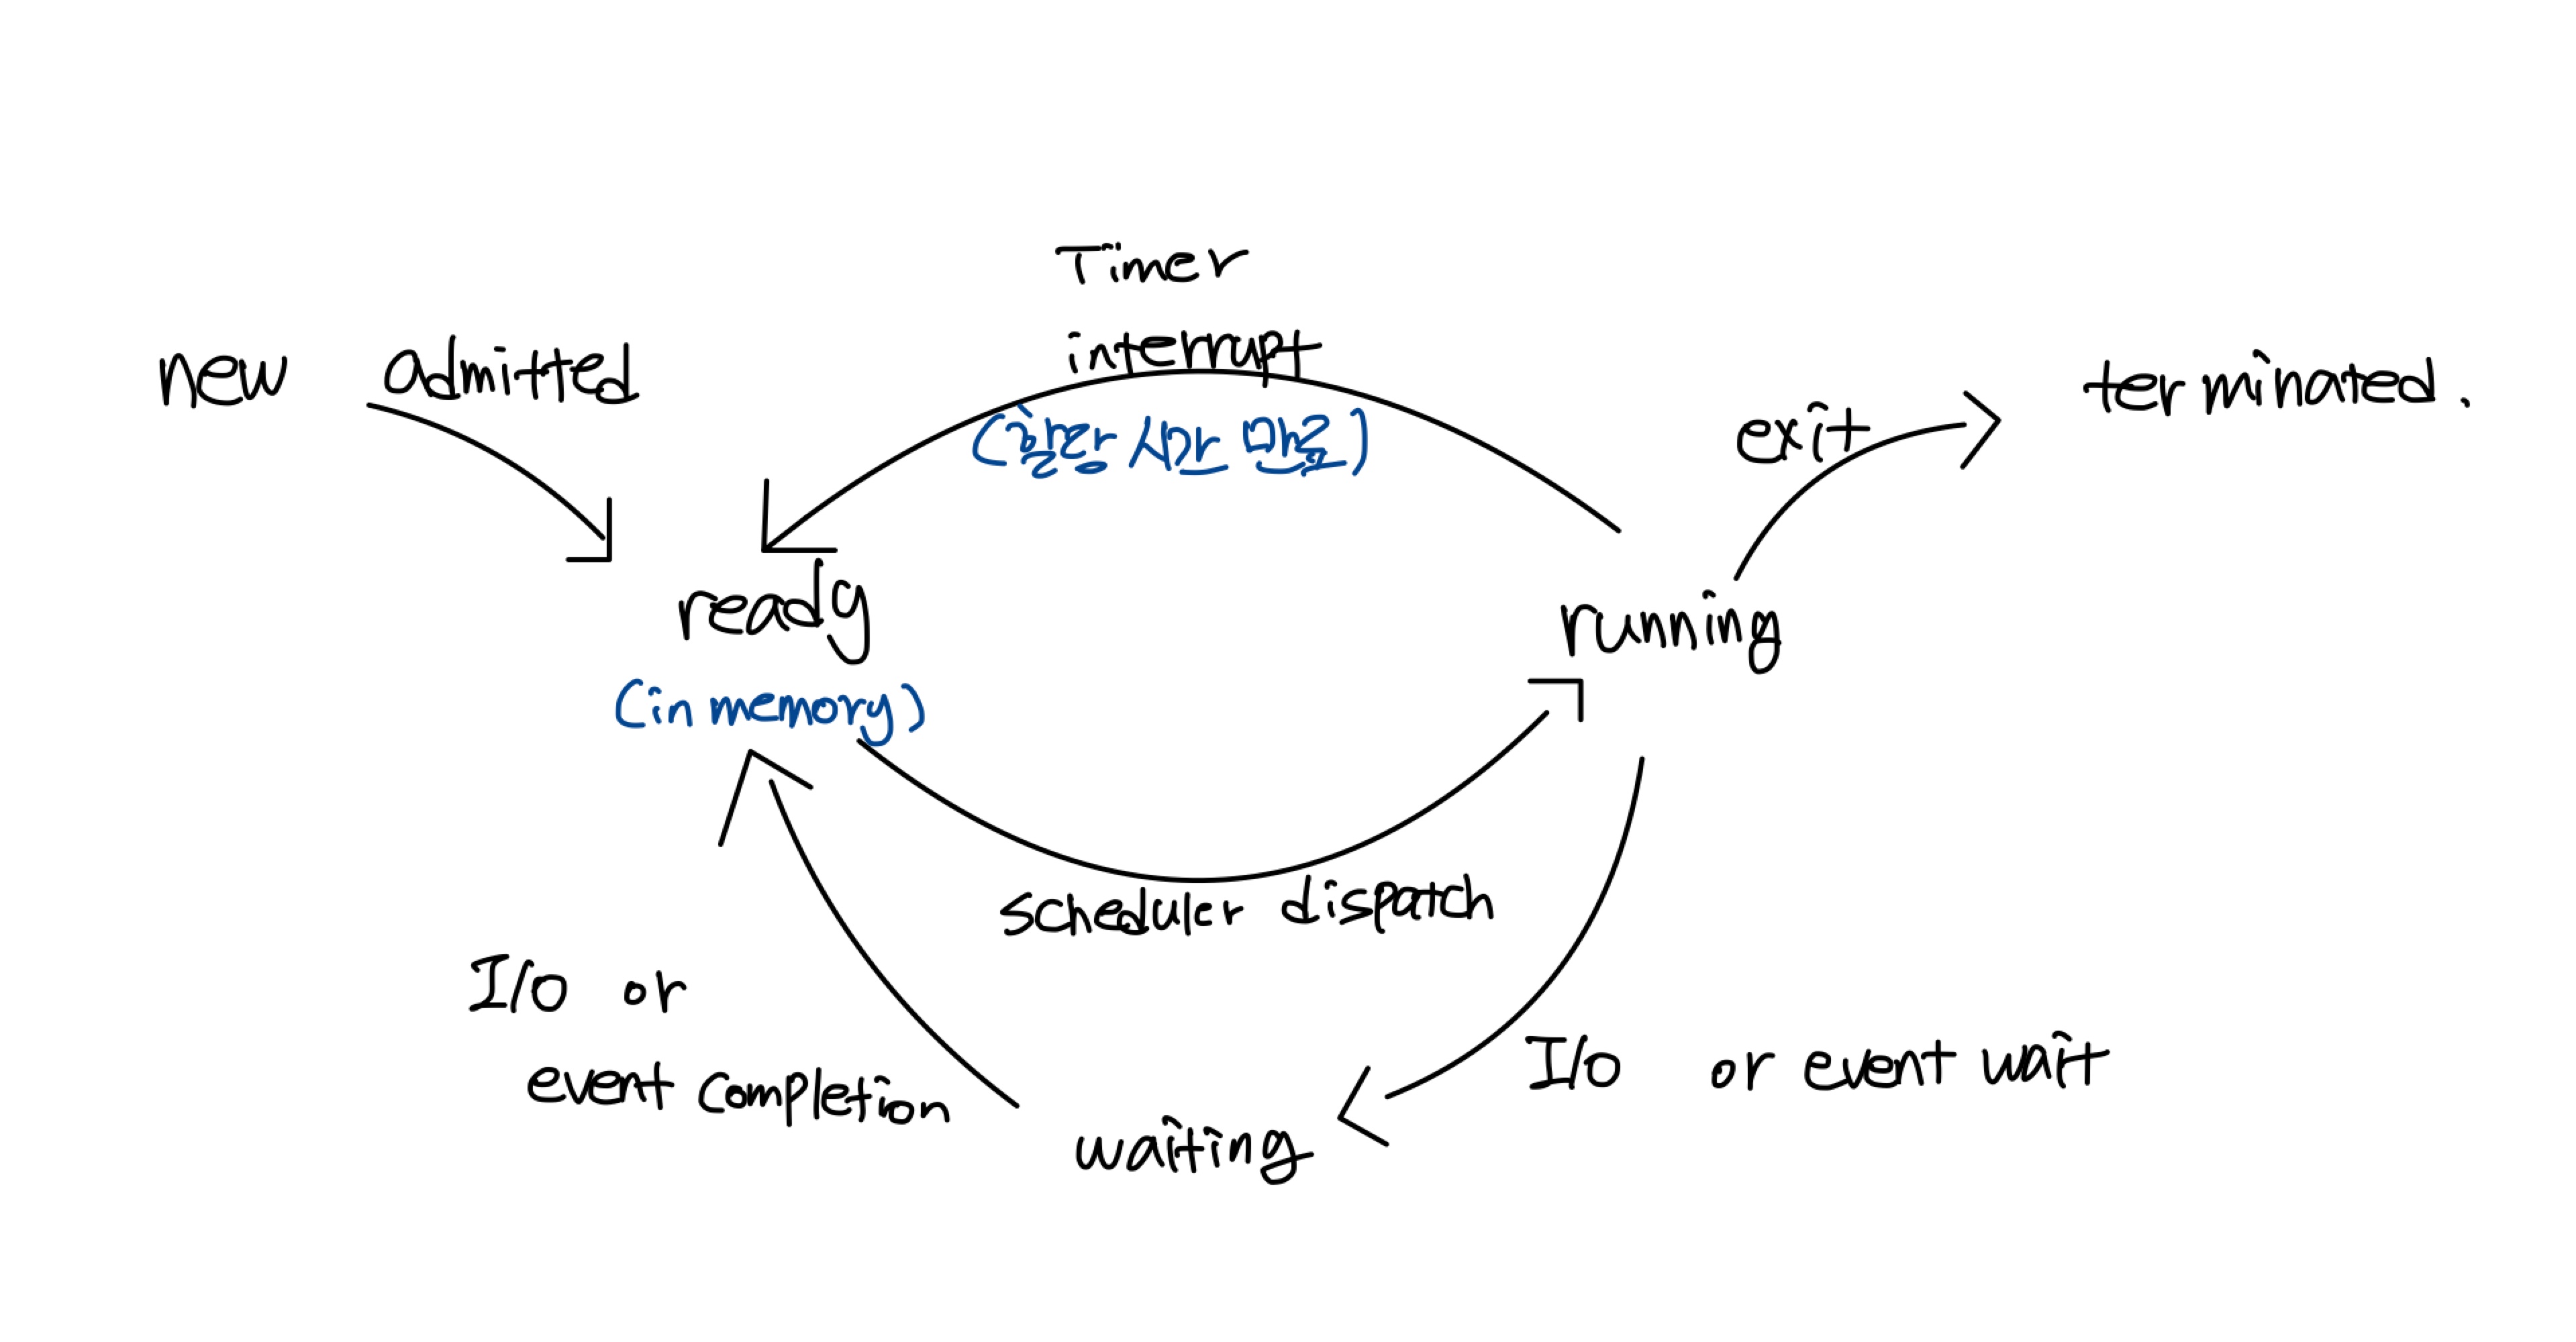 Timer
interrupt
(할당 시간 만료)
new admitted
exit
terminated.
ready
(in memory)
running
scheduler dispatch
I/O or
event completion
I/O or event wait
waiting